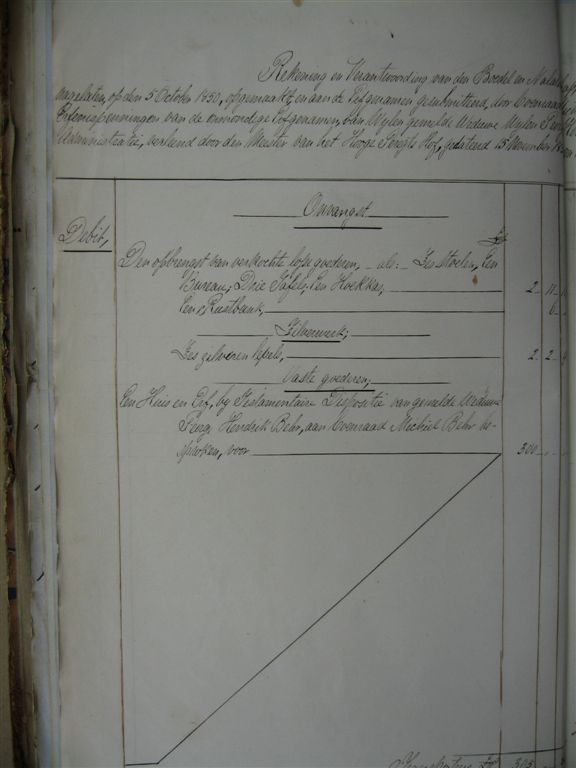 Rekening en Verantwoording van den Boedel en
nagelaten, op den 5 October 1850, opgemaakt en aan de Erfgenamen gesubmitteerd, door Coenraad
van de onmondige Erfgenamen van Wylen gemelde Weduwe Wylen
Administratie, verleend door den Meester van het Hooge Geregts Hof, gedateerd 15 November
Ontvangst
Debit,
Den opbrengst van verkochte losse goederen, als:- Zes Stoelen, Een
Bureau, Drie Tafels, Een Hoekkas, 2 - 11 -
Een Rustbank, 6 -
Zilverwerk;
Zes zilveren lepels, 2 - 2 -
Vaste goederen;
Een Huis en Erf, by Testamentaire Dispositie van gemelde Weduwe
Hendrik Behr, aan Coenraad Michiel Behr be-
sproken, voor 300 - -